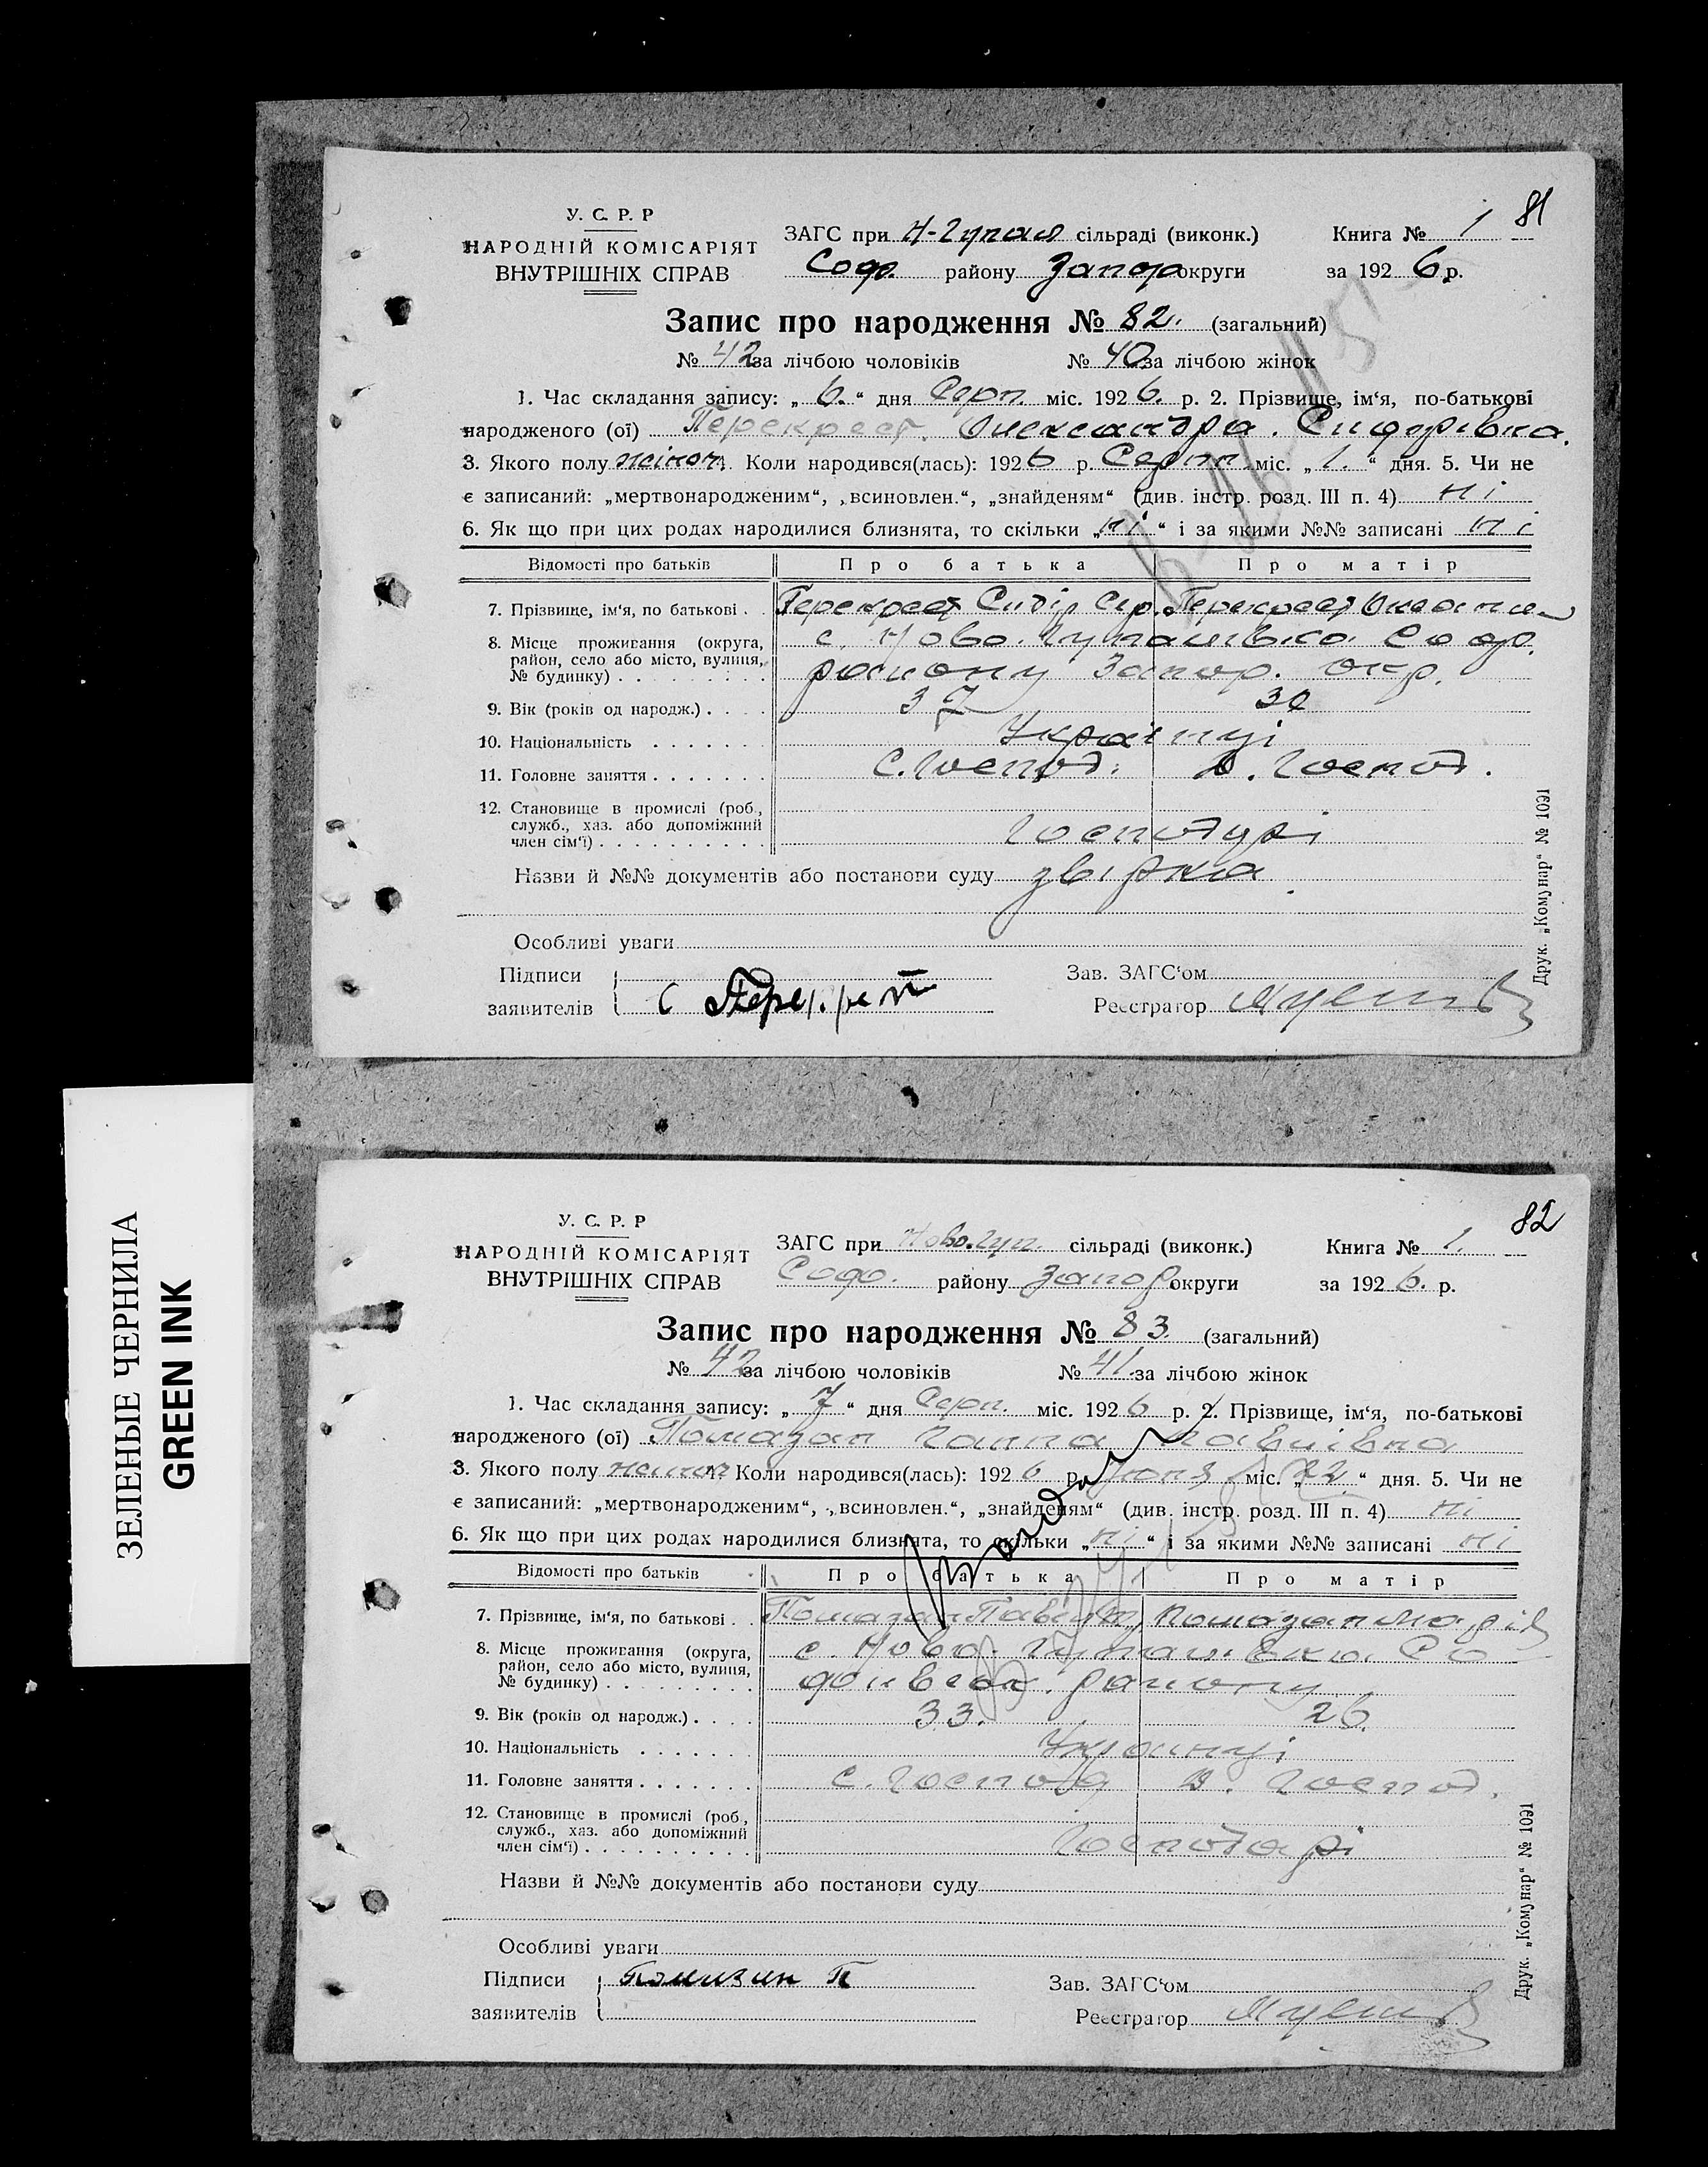 81
У. С. Р. Р
НАРОДНІЙ КОМІСАРІЯТ
ВНУТРІШНІХ СПРАВ
ЗАГС при Н-Гупал сільраді (виконк.) Книга № 1
Соф. району Запор округи за 1926 р.
Запис про народження № 82. (загальний)
№ 42 за лічбою чоловіків № 40 за лічбою жінок
1. Час складання запису: „ 6. “ дня Серп. міс. 1926. р. 2. Прізвище, ім‘я, по-батькові
народженого (ої) Перекрест. Олександра. Сидорівна.
3. Якого полу жіноч. Коли народився(лась): 1926 р. Серпн міс. „ 1. “ дня. 5. Чи не
є записаний: „мертвонародженим“, „всиновлен.“, „знайденям“ (див. інстр. розд. III п. 4) ні
6. Як що при цих родах народилися близнята, то скільки „ ні “ і за якими №№ записані ні
Відомості про батьків Про батька Про матір
7. Прізвище, ім‘я, по батькові . . Перекрест Сидір Перекрест
8. Місце проживання (округа,
район, село або місто, вулиця,
№ будинку) . . . . . . . . .
с. Ново. Гупалівка Соф.
району Запор. окр.
9. Вік (років од народж.) . . . . 37 30
10. Національність . . . . . . . Українці
11. Головне заняття . . . . . . . С. Господ. Д. Господ.
12. Становище в промислі (роб.,
служб., хаз. або допоміжний
член сім‘ї) . . . . . . . . . . Господарі
Назви й №№ документів або постанови суду звірка
Особливі уваги
Підписи
заявителів С Перекрест
Зав. ЗАГС‘ом
Реєстратор
Друк. „Комунар“ № 1091
ЗЕЛЕНЫЕ ЧЕРНИЛА
GREEN INK
82
У. С. Р. Р
НАРОДНІЙ КОМІСАРІЯТ
ВНУТРІШНІХ СПРАВ
ЗАГС при Ново. Гуп. сільраді (виконк.) Книга № 1.
Соф. району Запор округи за 1926. р.
Запис про народження № 83. (загальний)
№ 42 за лічбою чоловіків № 41. за лічбою жінок
1. Час складання запису: „ 7 “ дня Серп. міс. 1926 р. 2. Прізвище, ім‘я, по-батькові
народженого (ої) Помазан Ганна Павлівна
3. Якого полу жіноч Коли народився(лась): 1926 р. міс. „ 22 “ дня. 5. Чи не
є записаний: „мертвонародженим“, „всиновлен.“, „знайденям“ (див. інстр. розд. III п. 4) ні
6. Як що при цих родах народилися близнята, то скільки „ ні “ і за якими №№ записані ні
Відомості про батьків Про батька Про матір
7. Прізвище, ім‘я, по батькові . . Помазан Помазан Марія
8. Місце проживання (округа,
район, село або місто, вулиця,
№ будинку) . . . . . . . . .
с. Ново. Гупалівка Со
фіївськ. району
9. Вік (років од народж.) . . . . 33. 26.
10. Національність . . . . . . . Українці
11. Головне заняття . . . . . . . С. Господ Д. Господ.
12. Становище в промислі (роб.,
служб., хаз. або допоміжний
член сім‘ї) . . . . . . . . . . Господарі
Назви й №№ документів або постанови суду
Особливі уваги
Підписи
заявителів Помизан П
Зав. ЗАГС‘ом
Реєстратор
Друк. „Комунар“ № 1091